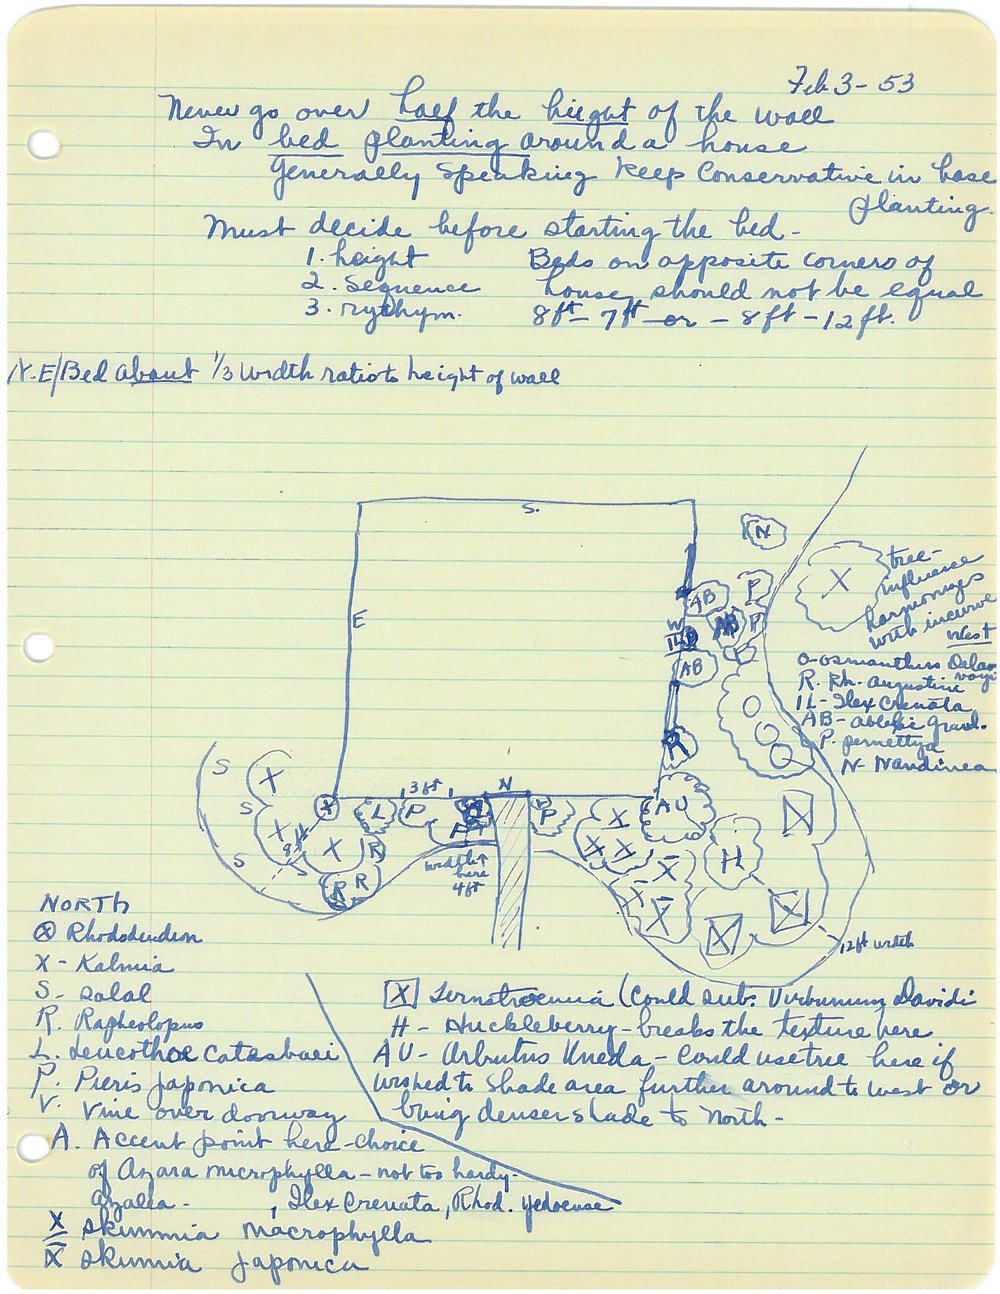 Feb 3 - 53
Never go over half the height of the wall
In bed planting around a house
Generally speaking keep conservative in base
planting.
Must decide before starting the bed -
1. height
2. Sequence
3. rythym.
Beds on opposite corners of
house, should not be equal
8 ft - 7 ft - or - 8 ft - 12 ft.
N.E/Bed about 1/3 width ratio to height of wall
S.
N
tree -
influence
harmonizes
with incurve
X
AB
P
E
AB
P
W
IL
West
P
AB
O - Osmanthus Delavayi
R. Rh. Augustini
IL - Ilex Crenata
AB - Abelia Grand.
P. pernettya
N - Nandinea
O
O
O
R
S
X
3 ft
N
S
X
L
P
P
X
AU
X
9 ft
X
R
X X
X
H
S
width
here
4 ft
R R
X
X
X
X
X
12 ft width
NORTH
X Rhododendron
X - Kalmia
S - Salal
R. Rapheolopus
L. Leucothoe Catesbaei
P. Pieris Japonica
V. Vine over doorway
A. Accent point here - choice
of Azara microphylla - not too hardy -
azalea - , Ilex Crenata, Rhod. yedoense
X Skimmia macrophylla
X Skimia Japonica
X Ternstroemia (Could sub. Virburnum Davidi
H - Huckleberry - breaks the texture here
AU - Arbutus Uneda - Could use tree here if
wished to shade area further around to west or
bring denser shade to North -